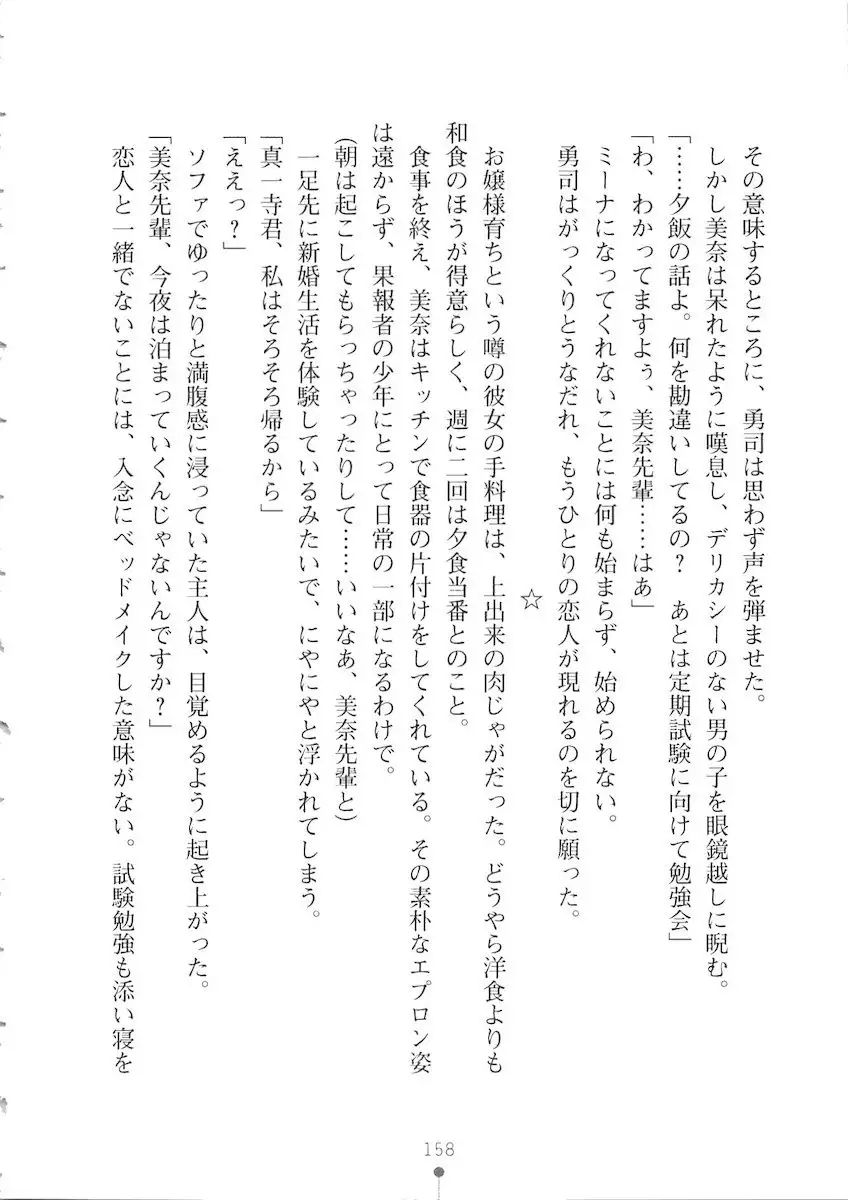 その意味するところに、勇司は思わず声を弾ませた。
しかし美奈は呆れたように嘆息し、デリカシーのない男の子を眼鏡越しに睨む。
「……夕飯の話よ。何を勘違いしてるの？　あとは定期試験に向けて勉強会」
「わ、わかってますよぅ、美奈先輩……はぁ」
ミーナになってくれないことには何も始まらず、始められない。
勇司はがっくりとうなだれ、もうひとりの恋人が現れるのを切に願った。
☆
お嬢様育ちという噂の彼女の手料理は、上出来の肉じゃがだった。どうやら洋食よりも
和食のほうが得意らしく、週に二回は夕食当番とのこと。
食事を終え、美奈はキッチンで食器の片付けをしてくれている。その素朴なエプロン姿
は遠からず、果報者の少年にとって日常の一部になるわけで。
(朝は起こしてもらっちゃったりして……いいなあ、美奈先輩と)
一足先に新婚生活を体験しているみたいで、にやにやと浮かれてしまう。
「真一寺君、私はそろそろ帰るから」
「ええっ？」
ソファでゆったりと満腹感に浸っていた主人は、目覚めるように起き上がった。
「美奈先輩、今夜は泊まっていくんじゃないんですか？」
恋人と一緒でないことには、入念にベッドメイクした意味がない。試験勉強も添い寝を
158